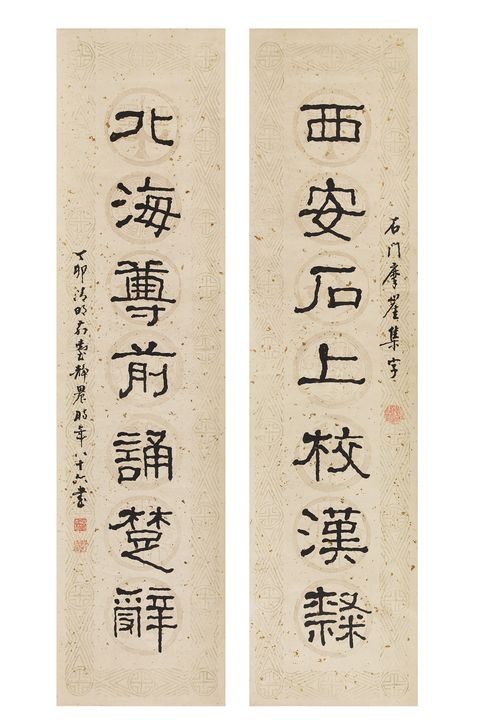 石门摩崖集字
西安石上校漢隸
北海尊前誦楚辭
丁卯清明前臺静農時年八十六書